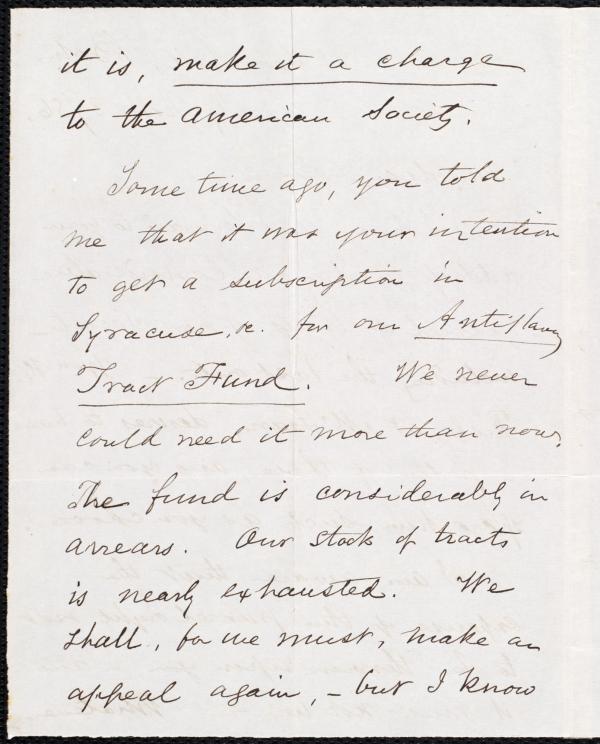 it is, make it a charge
to the American Society.
Some time ago, you told
me that it was your intention
to get a subscription in
Syracuse, &c. for our Antislavery
Tract Fund. We never
could need it more than now.
The fund is considerably in
arrears. Our stock of tracts
is nearly exhausted. We
shall, for we must, make an
appeal again, – but I know